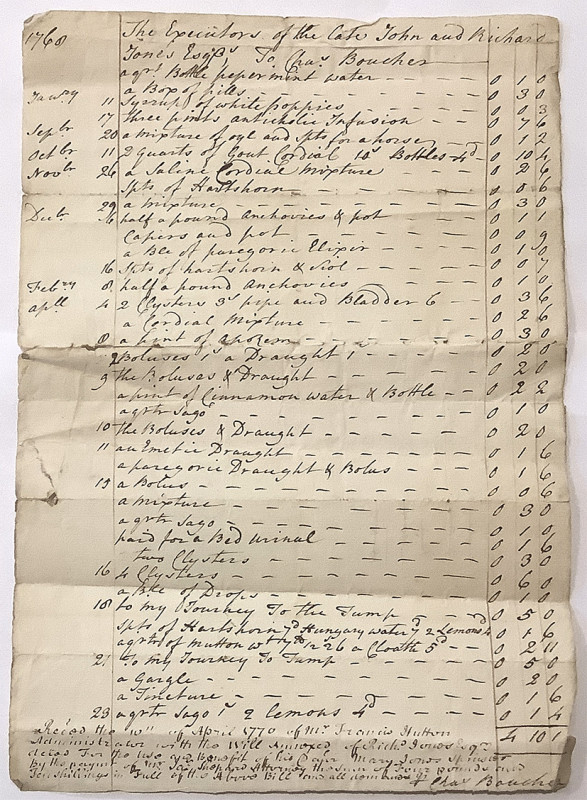 1768 The Executors of the Late John and Richard
Jones Esqrs To Chas Boucher
a qrt Bottle pepermint water — — 0 1 0
a Box of pills — — — 0 3 0
Janry 11 Syrrup of white poppies — — 0 0 3
17 three pints anticholic Infusion — — 0 7 6
Sepbr 20 a mixture of oyl and spts for a horse — 0 1 2
Octbr 11 2 quarts of Gout Cordial 10s Bottles 4d — 0 10 4
Novbr 26 a Saline Cordial Mixture — — 0 2 6
Spts of Hartshorn — — 0 0 6
29 a mixture — — — 0 3 0
Decbr 6 half a pound Anchovies & pot — — 0 1 1
Capers and pot — — — 0 0 9
a Btle of paregoric Elixer — — 0 1 0
16 Spts of hartshorn & — — 0 0 7
Febry 8 half a pound Anchovies — — 0 1 0
apll 4 2 Clysters 3s pipe and Bladder 6 — — 0 3 6
a Cordial Mixture — — — 0 2 6
8 a pint of apozem — — — 0 3 0
2 Boluses 1s a Draught 1 — — 0 2 0
9 the Boluses & Draught — — 0 2 0
a pint of Cinnamon water & Bottle — — 0 2 2
a qrtr Sago — — — 0 1 0
10 the Boluses & Draught — — — 0 2 0
11 an Emetic Draught — — — 0 1 6
a paregoric Draught & Bolus — — — 0 1 6
15 a Bolus — — — 0 0 6
a mixture — — — 0 3 0
a qrtr Sago — — — 0 1 0
paid for a Bed Urinal — — — 0 1 6
two Clysters — — — 0 3 0
16 4 Clysters — — — 0 6 0
a Btle of Drops — — — 0 1 0
18 to my Journey To the Tump — — 0 5 0
Spts of Hartshorn 7d Hungary water 7d 2 Lemons 4 0 1 6
a qrtr of Mutton wt 26 a Cloath 5d — 0 2 11
21 To my Journey To Tump — — — 0 5 0
a Gargle — — — 0 2 0
a Tincture — — — 0 1 6
23 a qrtr Sago 1s 2 Lemons 4d — — 0 1 4
4 10 1
Reced the of April 1770 of Mr Francis Hutton
Administrator with the Will Annexed of Richd Jones Esqr
deced For the Use & Benefit of his Mary Jones Spinster
By the paymt of Mr Shephard Attorney the sum of Four pounds and
Ten shillings in Full of the Above Bill and all demands
Chas Boucher